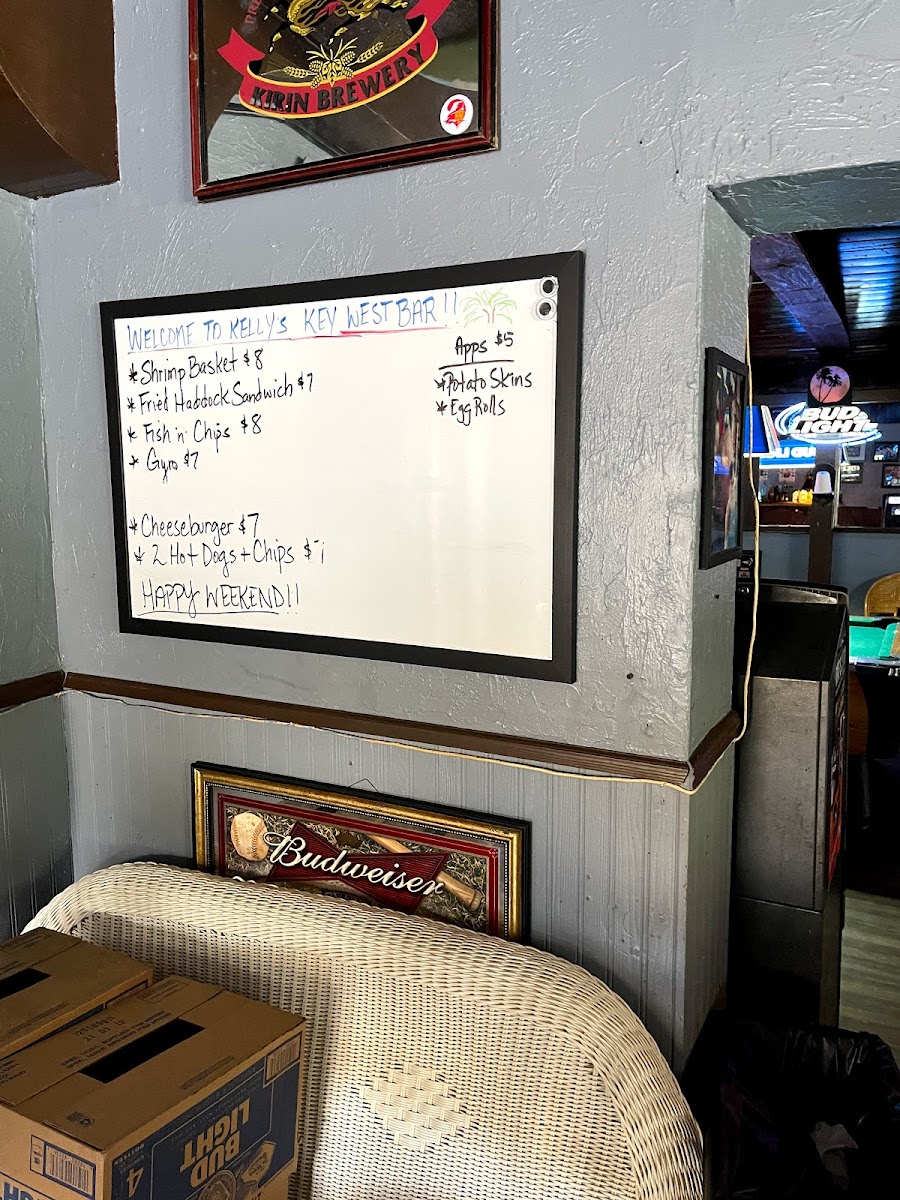 KIRIN BREWERY
WELCOME TO KELLY'S KEY WEST BAR!!
*Shrimp Basket $8
*Fried Haddock Sandwich $7
* Fish 'n' Chips $8
* Gyro $7
*Cheeseburger $7
* 2 Hot Dogs + Chips
HAPPY WEEKEND!!
Apps $5
*Potato Skins
*Egg Rolls
BUD
LIGHT
Budweiser
BUD
LIGHT
4